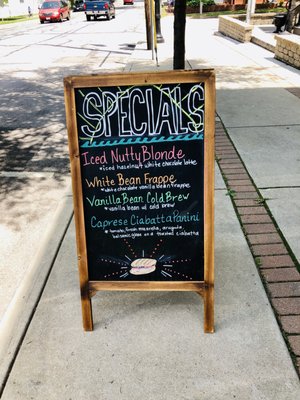 SPECIALS
Iced Nutty Blonde
*iced hazelnut white chocolate latte
White Bean Frappe
*white chocolate vanilla bean frappe
Vanilla Bean Cold Brew
*vanilla bean cold brew
Caprese Ciabatta Panini
*tomato, fresh mozzarella, arugula,
balsamic glaze and toasted ciabatta